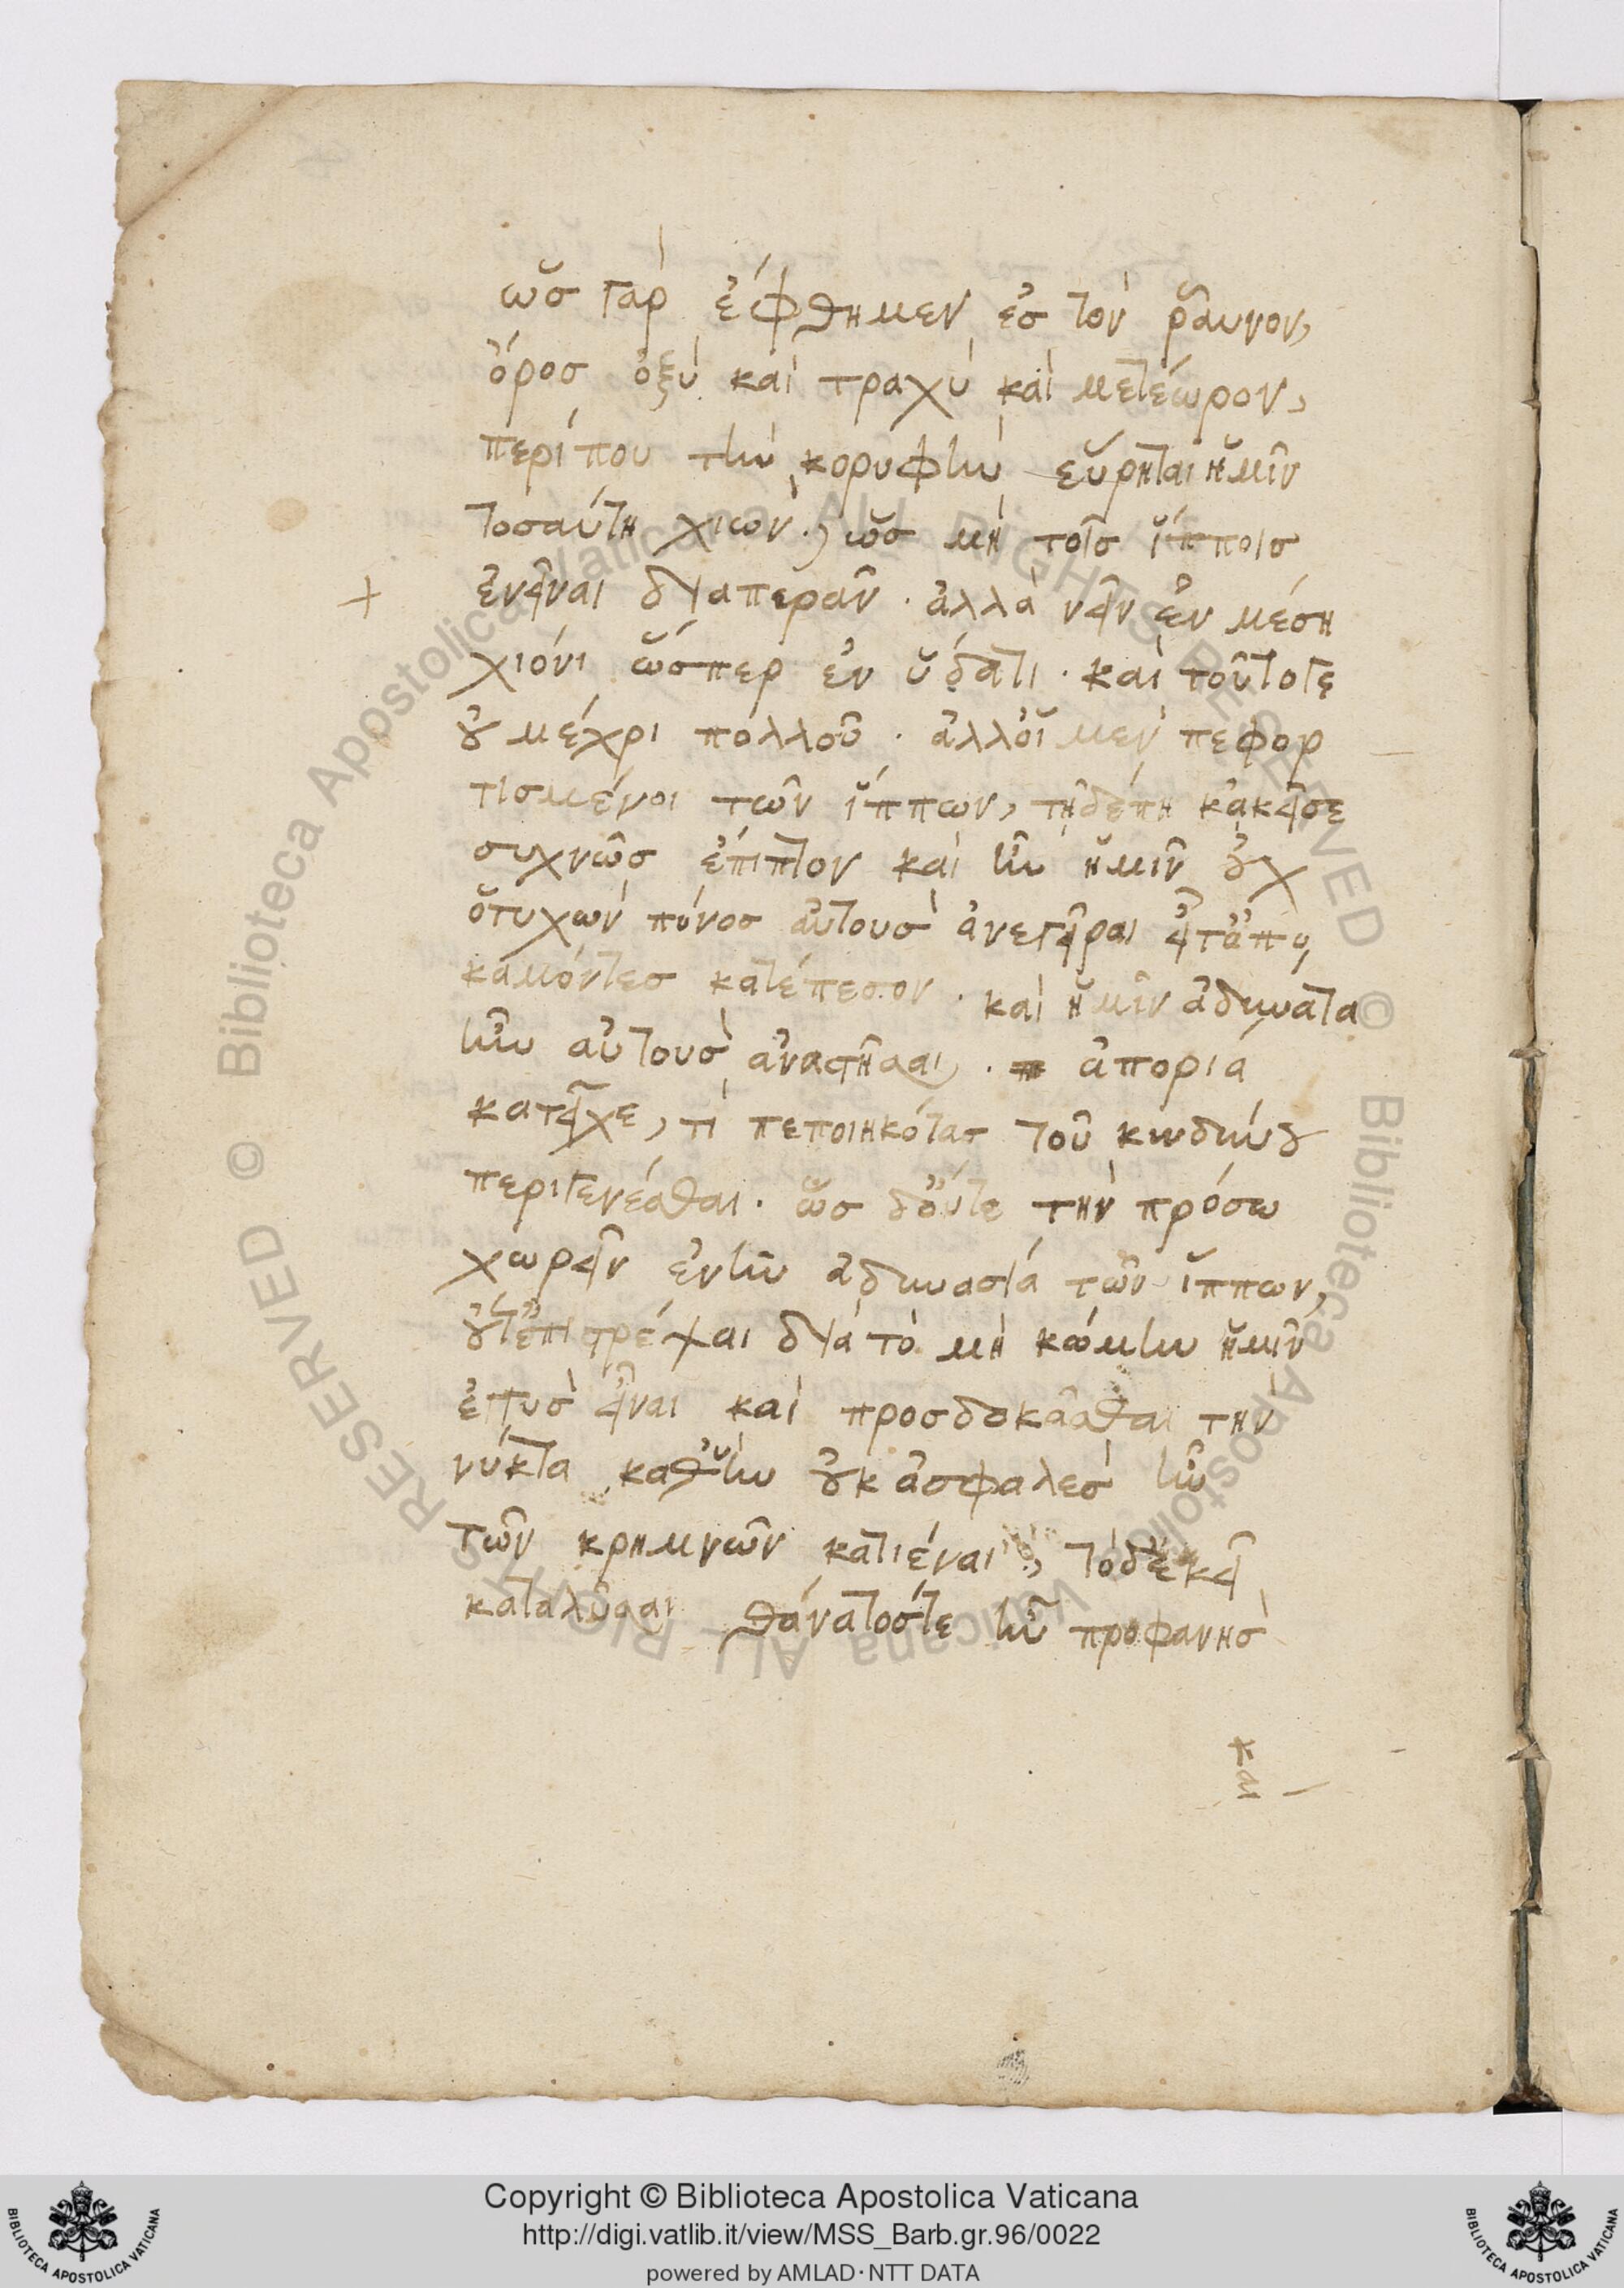 ὡς γὰρ ἔφθημεν ἐς τὸν ῥάυνον,
ὄρος ὀξὺ καὶ τραχὺ καὶ μετέωρον,
περί που τὴν κορυφὴν εὕρηται ἡμῖν
τοσαύτη χιὼν, ὡς μὴ τοῖς ἵπποις
ἐνεῖναι διαπερᾶν. ἀλλὰ νεῖν ἐν μέσῃ
χιόνι ὥσπερ ἐν ὕδατι. καὶ τοῦτό γε
οὐ μέχρι πολλοῦ. ἀλλ᾽ οἱ μὲν πεφορ
τισμένοι τῶν ἵππων, τῇδέ πη κἀκεῖσε
συχνῶς ἔπιπτον καὶ ἦν ἡμῖν οὐχ
ὁ τυχὼν πόνος αὐτοὺς ἀνεγεῖραι
καμόντες κατέπεσον. καὶ ἡμῖν ἀδύνατα
ἦν αὐτοὺς ἀναστῆσαι. ἀπορία
κατεῖχε, τί πεποιηκότας τοῦ κινδύνου
περιγενέσθαι. ὡς δ᾽ οὔτε τὴν πρόσω
χωρεῖν ἐνῆν ἀδυνασίᾳ τῶν ἵππων,
οὔτ᾽ ἐπιστρέψαι διὰ τὸ μὴ κώμην ἡμῖν
ἐγγὺς εἶναι καὶ προσδοκᾶσθαι τὴν
νύκτα καθ᾽ ἣν οὐκ ἀσφαλὲς ἦν
τῶν κρημνῶν κατιέναι, τὸ δ᾽ ἐκεῖ
καταλῦσαι θάνατός τε ἦν προφανὴς
καὶ
Copyright © Biblioteca Apostolica Vaticana
http://digi.vatlib.it/view/MSS_Barb.gr.96/0022
powered by AMLAD·NTT DATA